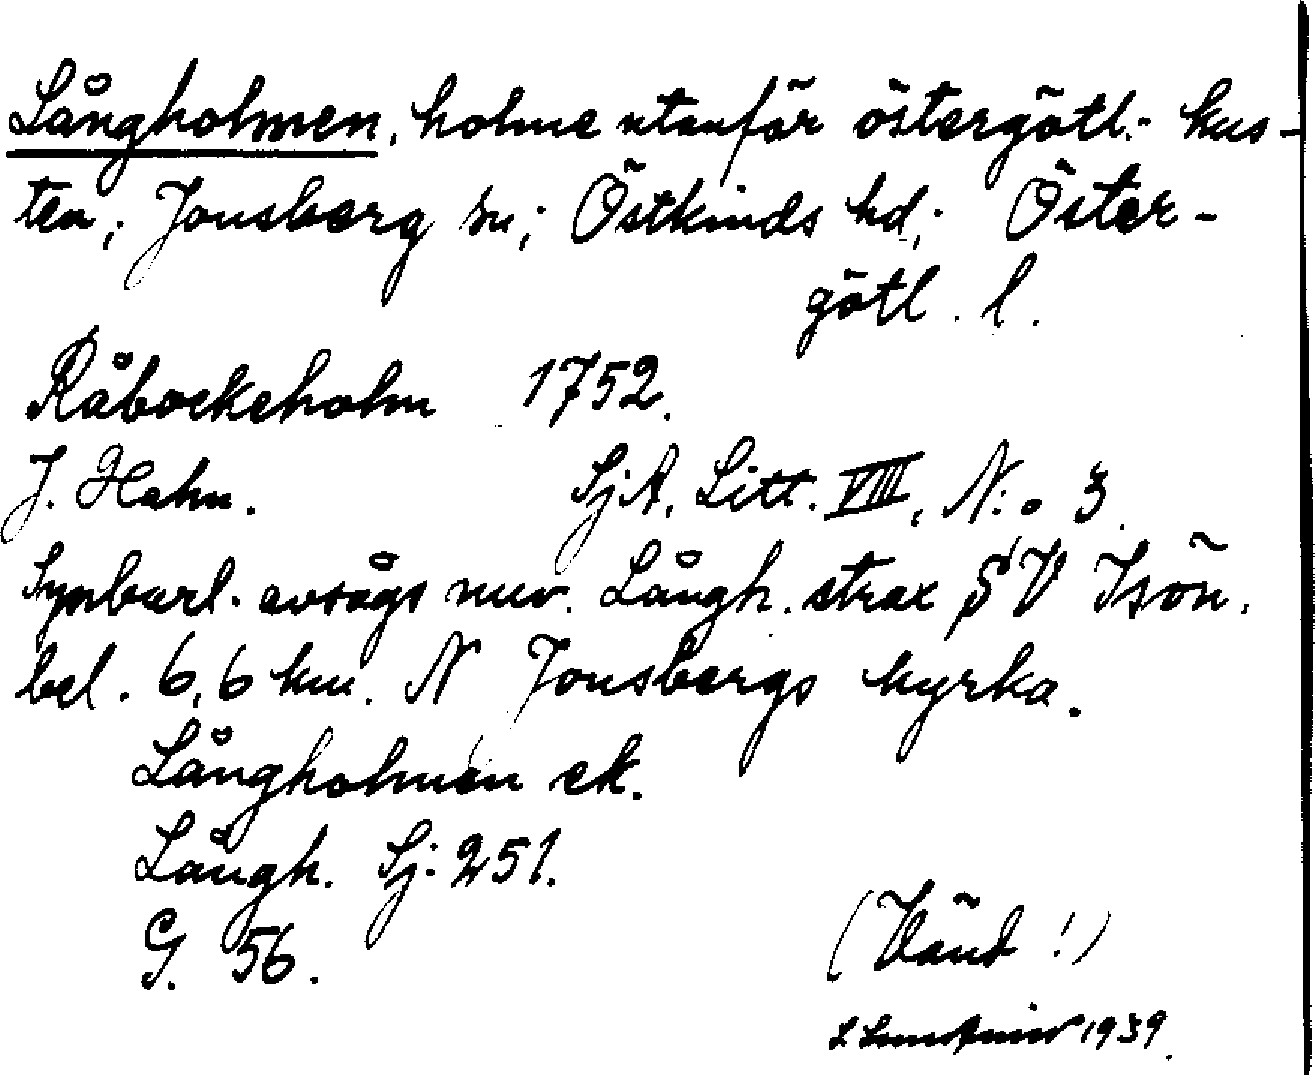 Långholmen, holme utanför östergötl:- kus-
ten; Jonsberg sn; Östkinds hd; Öster-
götl. l.
Råbockeholm 1752.
J. Hahn. SjA, Litt. VIII, N:o 3.
Synbarl. avsågs nuv. Långh. strax SV Isön.
bel. 6,6 km. N Jonsbergs kyrka.
Långholmen ek.
Långh. Sj: 251.
G. 56.
(Vänd!)
1939.